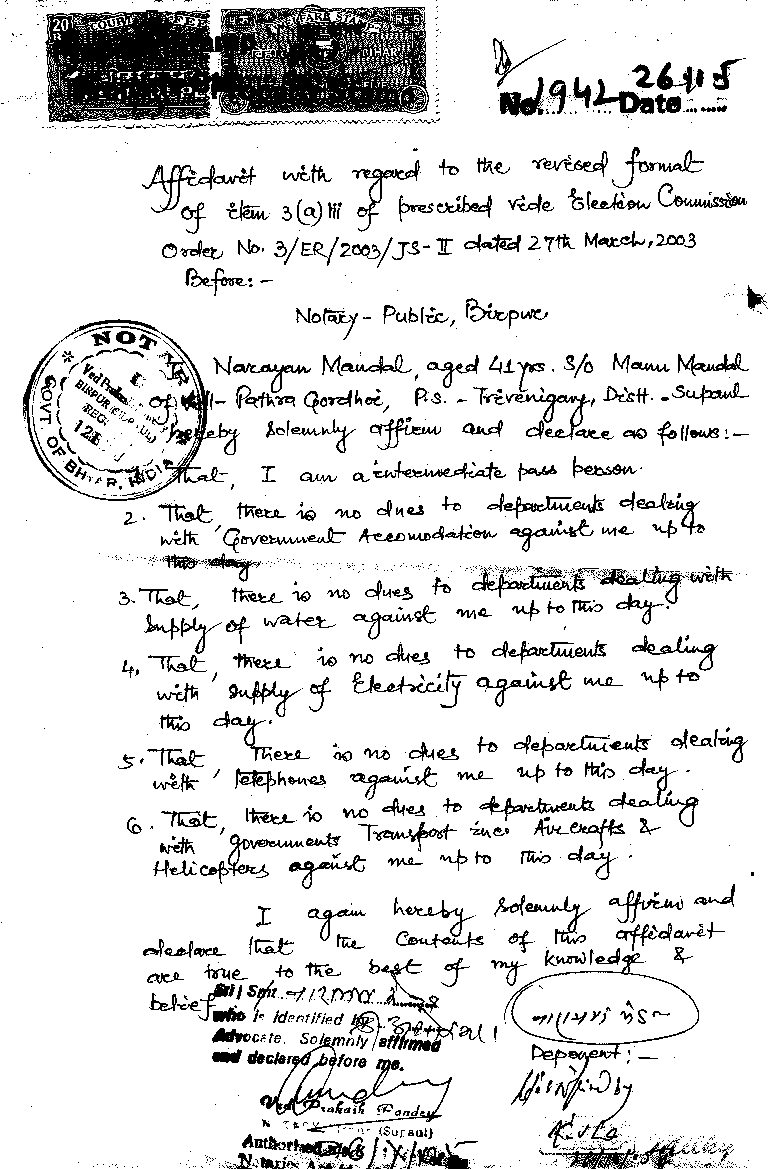 20
COURT FEE
WELFARE STAMP
RS 5
No. 1942 Date 26/11/5
Affidavit with regard to the revised format
of item 3(a)iii of prescribed vide Election Commission
Order No. 3/ER/2003/JS-II dated 27th March, 2003
Before:-
Notary - Public, Birpur
NOTARY
GOVT OF BIHAR, INDIA
Narayan Mandal, aged 41 yrs. S/o Manu Mandal
of Vill- Pathra Gordhoi, P.S. - Triveniganj, Distt. - Supaul
hereby Solemnly affirm and declare as follows:-
That, I am a intermediate pass person.
2. That, there is no dues to departments dealing
with Government Accomodation against me up to
this day
3. That, there is no dues to departments dealing with
Supply of water against me up to this day.
4. That, there is no dues to departments dealing
with supply of Electricity against me up to
this day.
5. That, There is no dues to departments dealing
with Telephones against me up to this day.
6. That, there is no dues to departments dealing
with governments Transport inc. Aircrafts &
Helicopters against me up to this day.
I again hereby Solemnly affirm and
declare that the Contents of this affidavit
are true to the best of my knowledge &
belief
Sri / Smt.
who is identified by
Advocate. Solemnly affirmed
and declared before me.
नारायण मंडल
Deponent:-
Ved Prakash Pandey
(Supaul)
Authorised